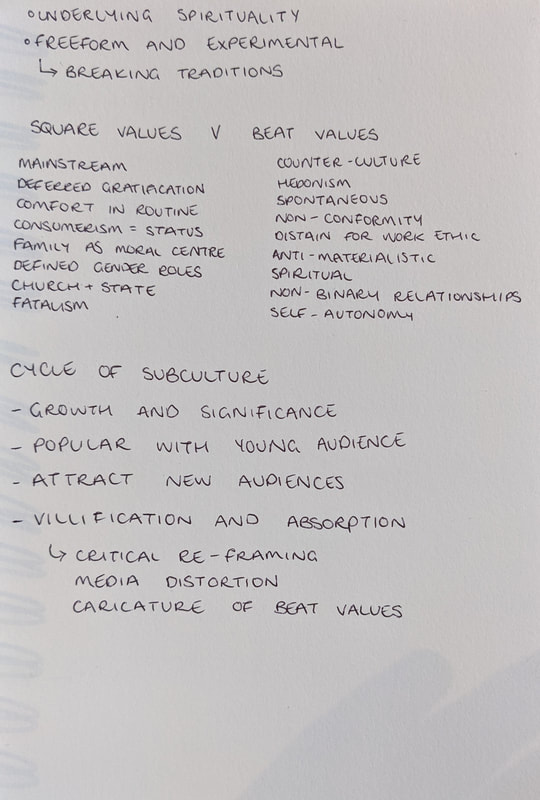 °UNDERLYING SPIRITUALITY
°FREEFORM AND EXPERIMENTAL
↳ BREAKING TRADITIONS
SQUARE VALUES V BEAT VALUES
MAINSTREAM
DEFERRED GRATIFICATION
COMFORT IN ROUTINE
CONSUMERISM = STATUS
FAMILY AS MORAL CENTRE
DEFINED GENDER ROLES
CHURCH + STATE
FATALISM
COUNTER-CULTURE
HEDONISM
SPONTANEOUS
NON-CONFORMITY
DISTAIN FOR WORK ETHIC
ANTI-MATERIALISTIC
SPIRITUAL
NON-BINARY RELATIONSHIPS
SELF-AUTONOMY
CYCLE OF SUBCULTURE
- GROWTH AND SIGNIFICANCE
- POPULAR WITH YOUNG AUDIENCE
- ATTRACT NEW AUDIENCES
- VILLIFICATION AND ABSORPTION
↳ CRITICAL RE-FRAMING
MEDIA DISTORTION
CARICATURE OF BEAT VALUES